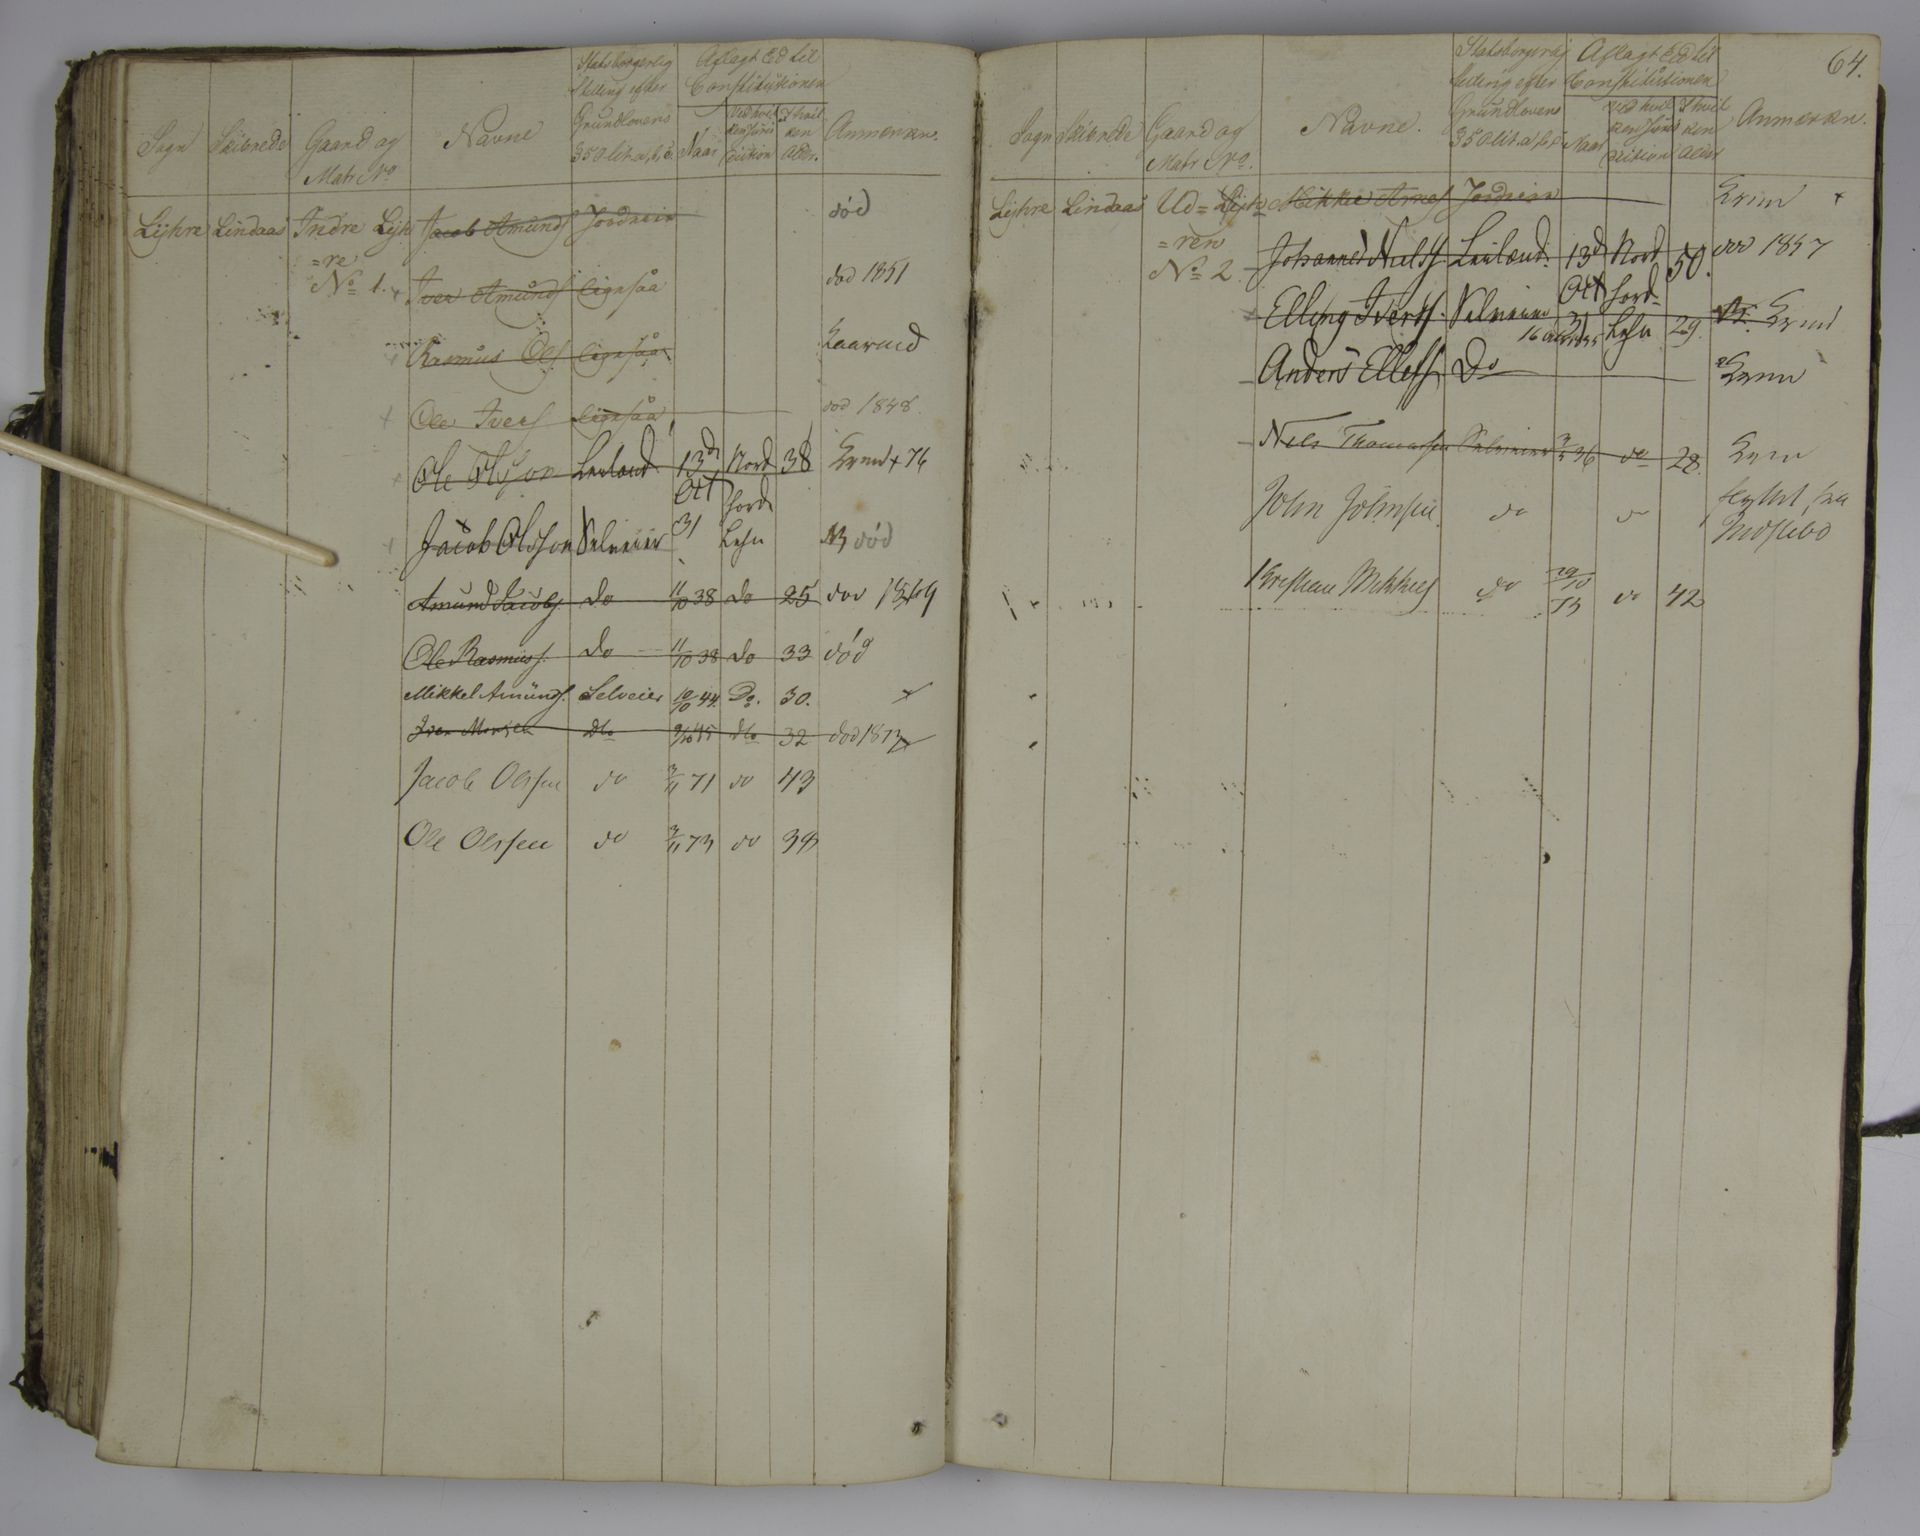 Sogn Skibrede Gaard og Matr No Navne Statsborgerlig Stilling efter Grundlovens § 50 lit. a, b, c. Aflagt Ed til Constitutionen Naar Ved hvilken Jurisdiction I hvilken Alder. Anmærkn.
Lyhre Lindaas Indre Lyh=re No 1. Jacob Amunds Jordeier død
Iver Amunds Ligesaa død 1851
Rasmus Ols. Ligesaa
Ole Ivers Ligesaa død 1848.
Ole Olsson Leiland 13de Oct 31 Nord Hord Lehn 38 + 76
Jacob Olsson Selveier død
Amund Jacobs do 11/10 38 do 25
Ole Rasmuss. do 11/10 38 do 33 død
Mikkel Amunds. Selveier 10/10 44. Do. 30.
Iver Monsen dto 45 dto 32
Jacob Olssen do 3/11 71 do 43
Ole Olssen do 3/11 73 do 39
64.
Sogn Skibrede Gaard og Matr No. Navne. Statsborgerlig Stilling efter Grundlovens § 50 lit. a, b, c Aflagt Ed til Constitutionen Naar Ved hvilken Jurisdiction I hvilken Alder Anmærkn.
Lyhre Lindaas Ud=Lyh=ren No 2 Mikkel Arnes Jordeier
Johannes Niels. Leiland. 13de Oct 31 Nord Hord- Lehn 50. død 1857
Elling Ivers. Selveier 29.
Anders Ellefs. Do
Niels Thomassen Selveier 36 do 28.
John Johnsen. do do flyttet fra
Kristian Mikkels do 29/10 73 do 42